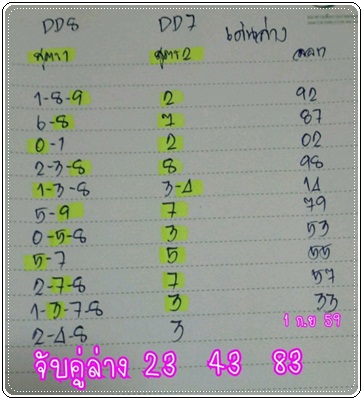 DD8 DD7 เด่นล่าง
สูตร1 สูตร2 ผลออก
1-8-9 2 92
6-8 7 87
0-1 2 02
2-3-8 8 98
1-3-8 3-4 14
5-9 7 79
0-5-8 3 53
5-7 5 55
2-7-8 7 57
1-3-7-8 3 33
1 ก.ย 59
2-4-8 3
จับคู่ล่าง 23 43 83